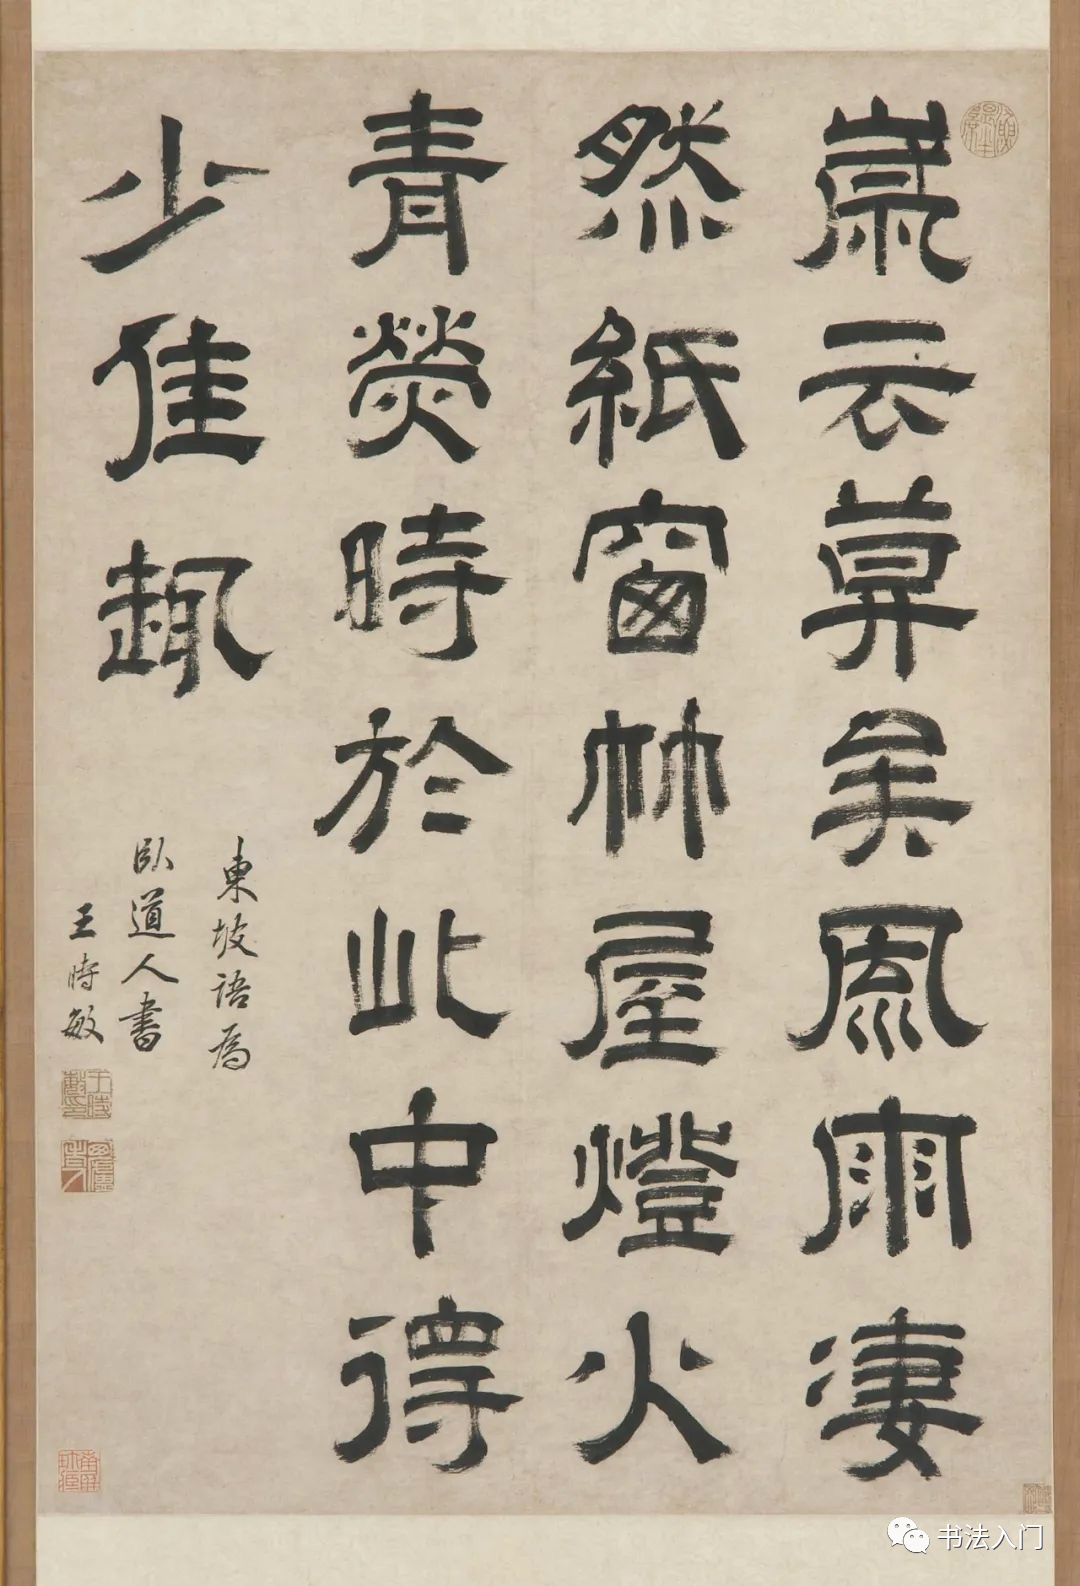 歲云莫矣風雨淒
然紙窗竹屋燈火
青熒時於此中得
少佳趣
東坡語爲
臥道人書
王時敏
书法入门